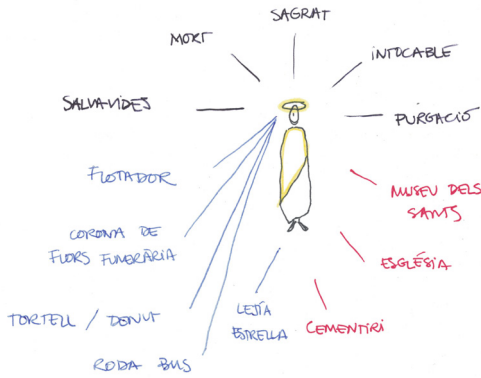 SAGRAT
MORT
INTOCABLE
SALVAVIDES
PURGACIÓ
FLOTADOR
MUSEU DELS
SANTS
CORONA DE
FLORS FUNERÀRIA
ESGLÉSIA
TORTELL / DONUT
LEJÍA
ESTRELLA
CEMENTIRI
RODA BUS